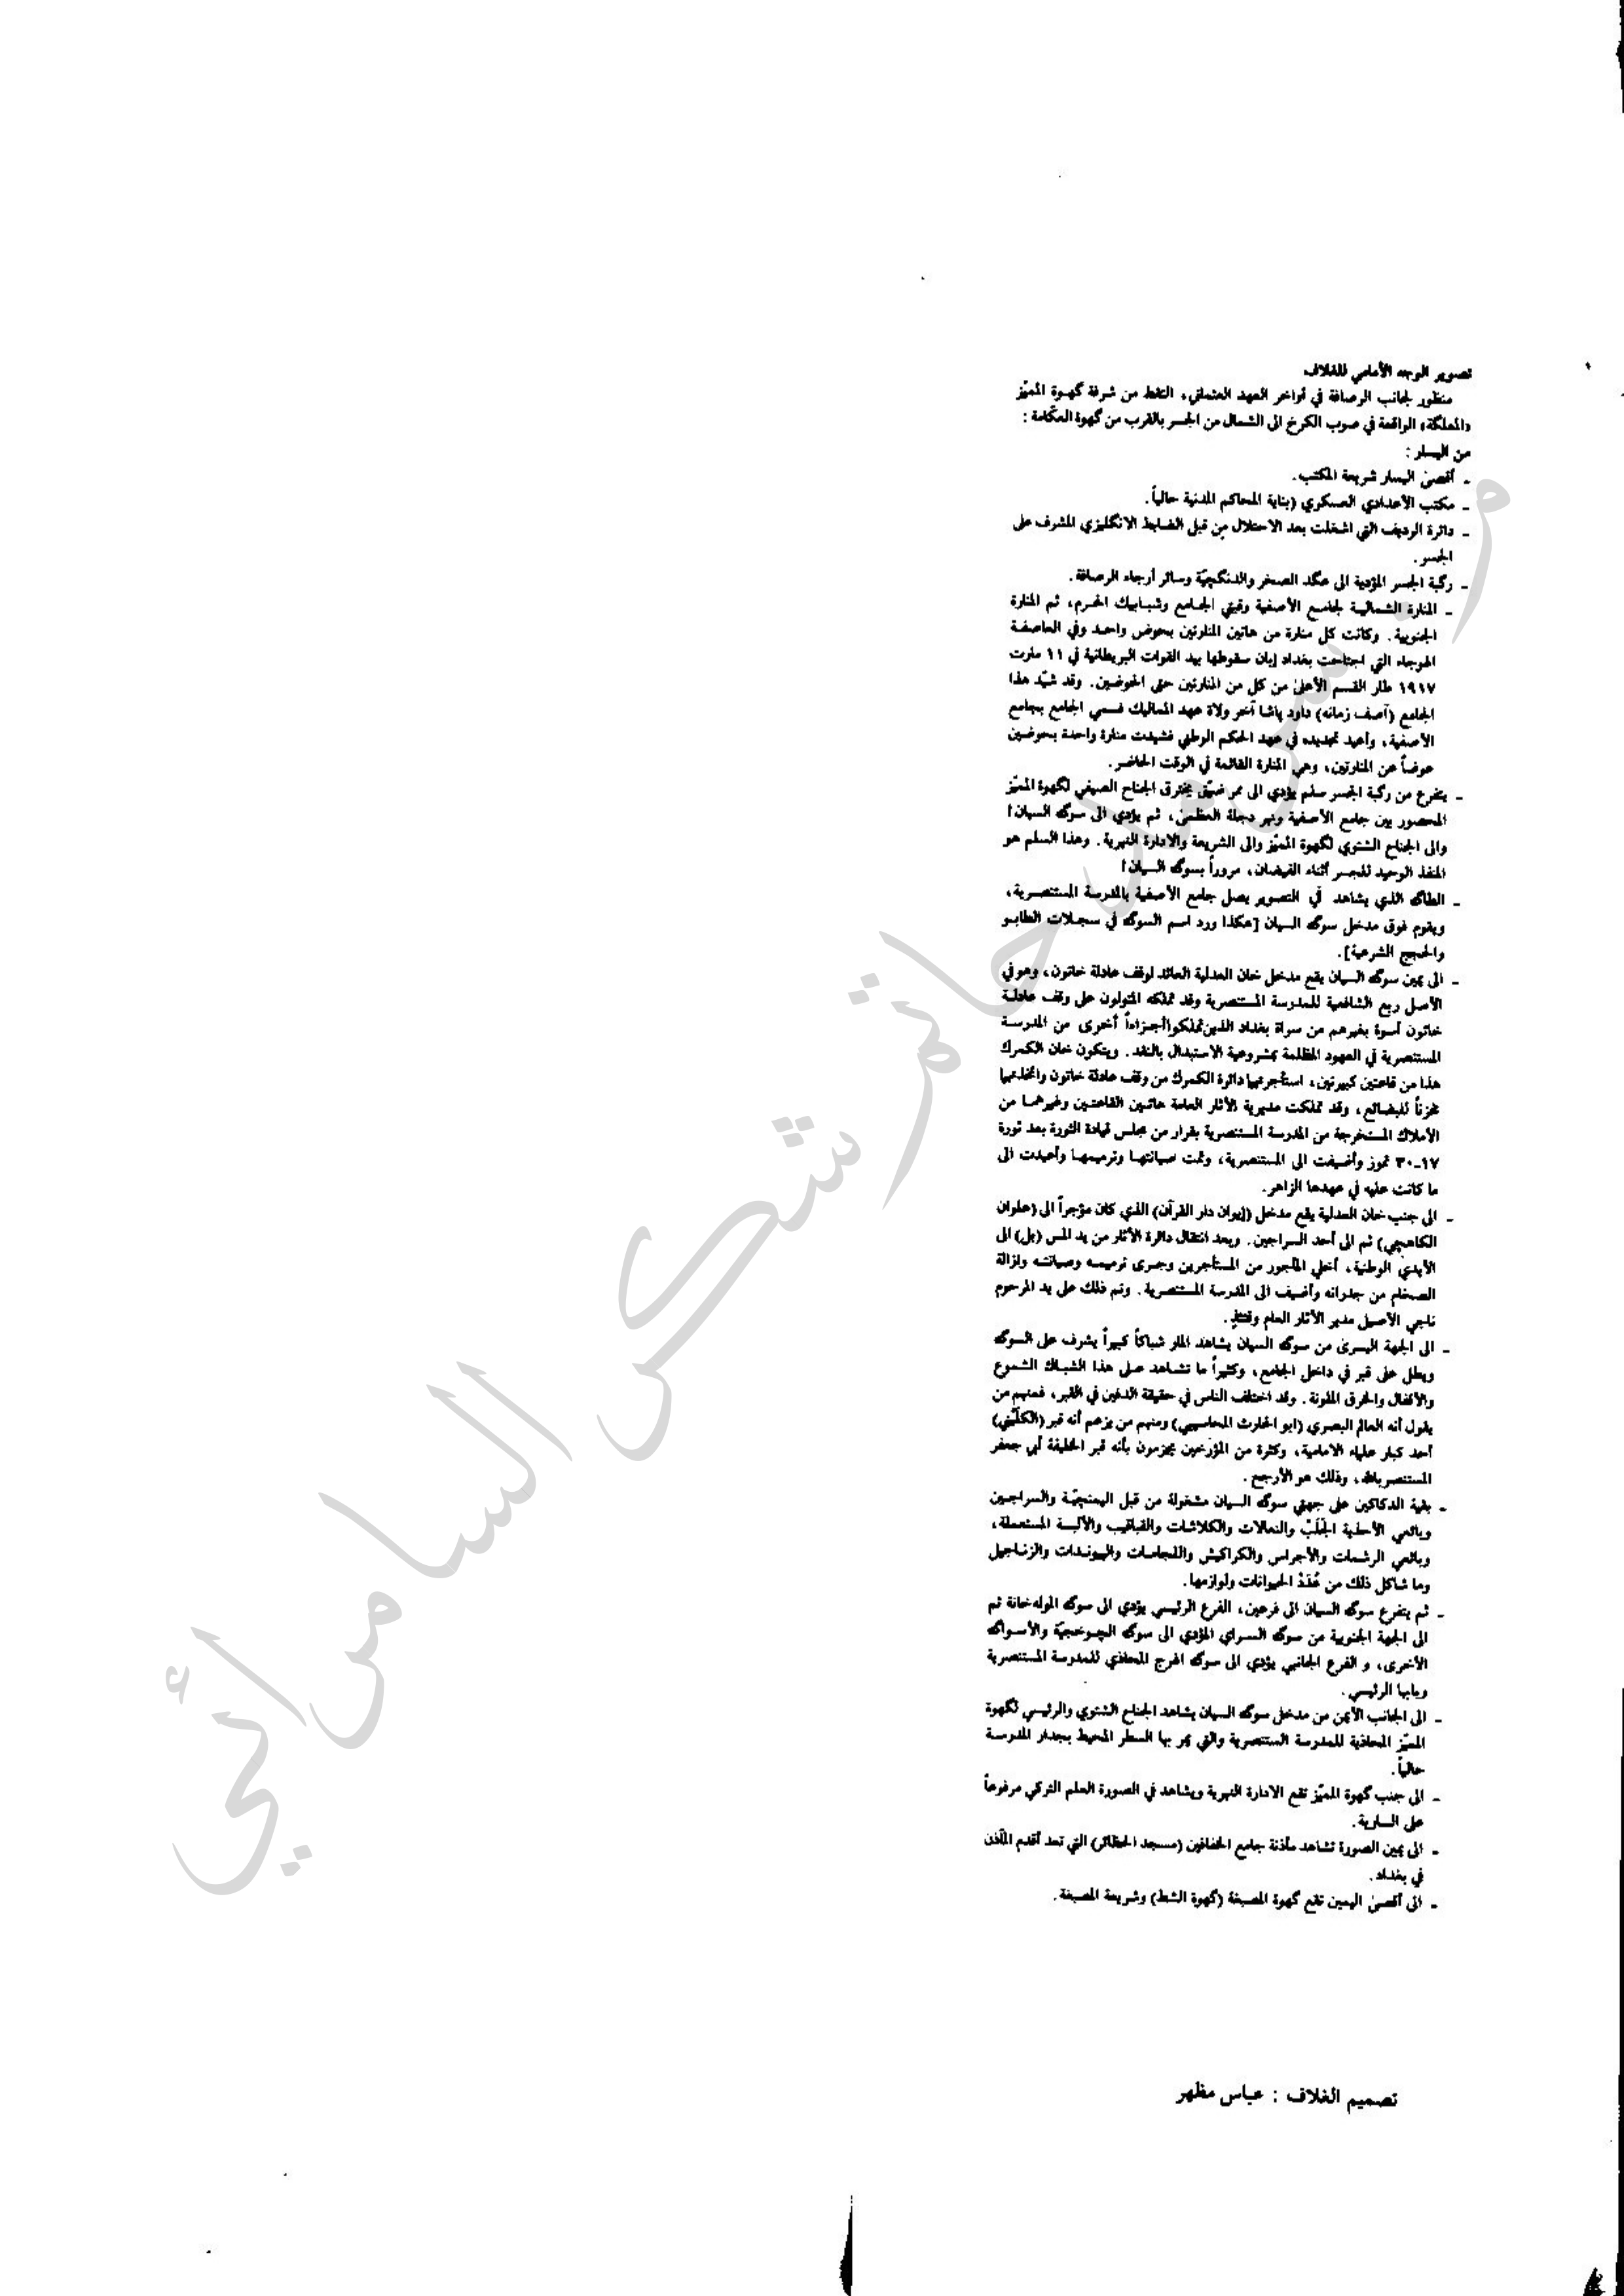 تصوير الوجه الأمامي للغلاف
منظور لجانب الرصافة في أواخر العهد العثماني، التقط من شرفة گهوة المميّز
«المعلگة» الواقعة في صوب الكرخ الى الشمال من الجسر بالقرب من گهوة العكّامة :
من اليسار :
ـ أقصى اليسار شريعة المكتب.
ـ مكتب الأعدادي العسكري (بناية المحاكم المدنية حالياً.
ـ دائرة الرديف التي اشغلت بعد الاحتلال من قبل الضابط الانگليزي المشرف على
الجسر.
ـ رگبة الجسر المؤدية الى عگد الصخر والدنگچيّة وسائر أرجاء الرصافة.
ـ المنارة الشمالية لجامع الأصفية وقبتي الجامع وشبابيك الحرم، ثم المنارة
الجنوبية. وكانت كل منارة من هاتين المنارتين بحوض واحد وفي العاصفة
الهوجاء التي اجتاحت بغداد إبان سقوطها بيد القوات البريطانية في ١١ مارت
١٩١٧ طار القسم الأعلى من كل من المنارتين حتى الحوضين. وقد شيّد هذا
الجامع (آصف زمانه) داود پاشا آخر ولاة عهد المماليك فسمي الجامع بجامع
الأصفية، وأعيد تجديده في عهد الحكم الوطني فشيدت منارة واحدة بحوضين
عوضاً عن المنارتين، وهي المنارة القائمة في الوقت الحاضر.
ـ يتفرع من ركبة الجسر سلم يؤدي الى ممر ضيّق يخترق الجناح الصيفي لگهوة المميّز
المحصور بين جامع الأصفية ونهر دجلة العظمى، ثم يؤدي الى سوگ السيان!
والى الجناح الشتوي لگهوة المميّز والى الشريعة والادارة النهرية. وهذا السلم هو
المنفذ الوحيد للجسر أثناء الفيضان، مروراً بسوگ السيان!
ـ الطاگ الذي يشاهد في التصوير يصل جامع الأصفية بالمدرسة المستنصرية،
ويقوم فوق مدخل سوگ السيان [هكذا ورد اسم السوگ في سجلات الطابو
والحجج الشرعية].
ـ الى يمين سوگ السيان يقع مدخل خان العدلية العائد لوقف عادلة خاتون، وهو في
الأصل ربع الشافعية للمدرسة المستنصرية وقد تملكه المتولون على وقف عادلة
خاتون أسوة بغيرهم من سراة بغداد الذين تملكوا أجزاءاً أخرى من المدرسة
المستنصرية في العهود المظلمة بمشروعية الاستبدال بالنقد. ويتكون خان الكمرك
هذا من قاعتين كبيرتين، استأجرتهما دائرة الكمرك من وقف عادلة خاتون واتخذتهما
مخزناً للبضائع، وقد تملكت مديرية الأثار العامة هاتين القاعتين وغيرهما من
الأملاك المستخرجة من المدرسة المستنصرية بقرار من مجلس قيادة الثورة بعد ثورة
١٧ـ٣٠ تموز وأضيفت الى المستنصرية، وتمت صيانتها وترميمها وأعيدت الى
ما كانت عليه في عهدها الزاهر.
ـ الى جنب خان العدلية يقع مدخل (إيوان دار القرآن) الذي كان مؤجراً الى (علوان
الكاهچي) ثم الى أحد السراجين. وبعد انتقال دائرة الأثار من يد المس (بل) الى
الأيدي الوطنية، أخلي المأجور من المستأجرين وجرى ترميمه وصيانته وازالة
الصخام من جدرانه وأضيف الى المدرسة المستنصرية. وتم ذلك على يد المرحوم
ناجي الأصيل مدير الأثار العام وقتئذٍ.
ـ الى الجهة اليسرى من سوگ السيان يشاهد المار شباكاً كبيراً يشرف على السوگ
ويطل على قبر في داخل الجامع، وكثيراً ما تشاهد على هذا الشباك الشموع
والأقفال والخرق الملونة. وقد اختلف الناس في حقيقة الدفين في القبر، فمنهم من
يقول أنه العالم البصري (ابو الحارث المحاسبي) ومنهم من يزعم أنه قبر (الكلّيني)
أحد كبار علماء الامامية، وكثرة من المؤرخين يجزمون بأنه قبر الخليفة أبي جعفر
المستنصر بالله، وذلك هو الأرجح.
ـ بقية الدكاكين على جهتي سوگ السيان مشغولة من قبل اليمنچيّة والسراجين
وبائعي الأحذية الجَلَبْ والنعالات والكلاشات والقباقيب والألبسة المستعملة،
وبائعي الرشمات والأجراس والكراكيش واللجامات والبوندات والزناجيل
وما شاكل ذلك من عُدَدْ الحيوانات ولوازمها.
ـ ثم يتفرع سوگ السيان الى فرعين، الفرع الرئيسي يؤدي الى سوگ الموله خانة ثم
الى الجهة الجنوبية من سوگ السراي المؤدي الى سوگ الچوخچيّة والأسواگ
الأخرى، و الفرع الجانبي يؤدي الى سوگ الهرج المحاذي للمدرسة المستنصرية
وبابها الرئيسي.
ـ الى الجانب الأيمن من مدخل سوگ السيان يشاهد الجناح الشتوي والرئيسي لگهوة
المميّز المحاذية للمدرسة المستنصرية والتي يمر بها السطر المحيط بجدار المدرسة
حالياً.
ـ الى جنب گهوة المميّز تقع الادارة النهرية ويشاهد في الصورة العلم التركي مرفوعاً
على السارية.
ـ الى يمين الصورة تشاهد مأذنة جامع الخفافين (مسجد الحظائر) التي تعد أقدم المآذن
في بغداد.
ـ الى أقصى اليمين تقع گهوة المصبغة (گهوة الشط) وشريعة المصبغة.
تصميم الغلاف : عباس مظهر
حاتم شكر السامرائي